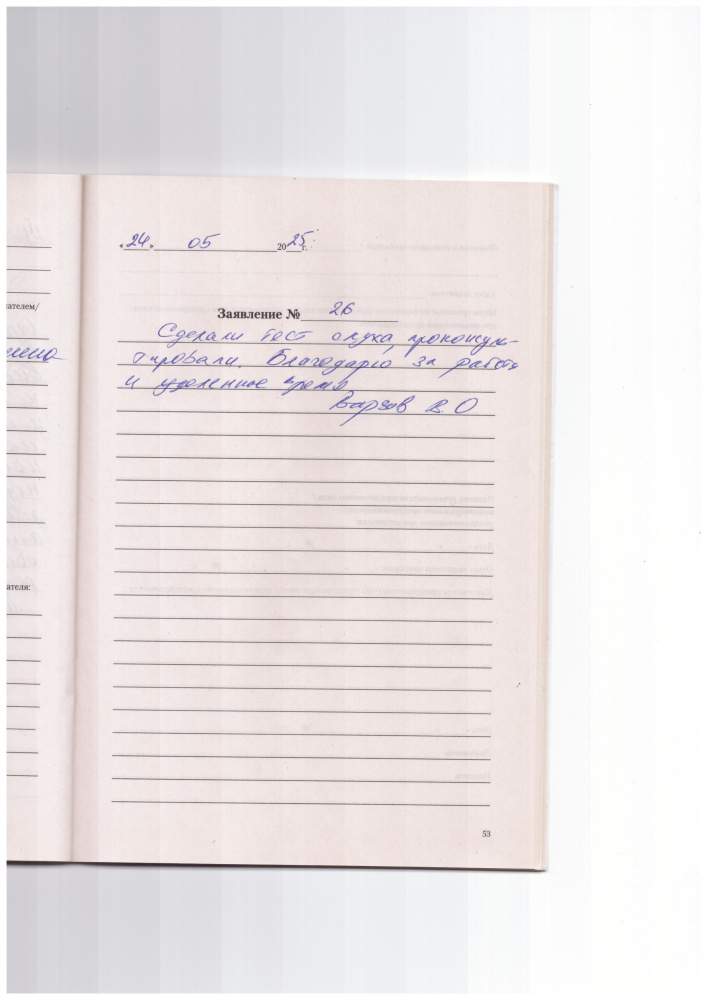 «24» 05 2025 г.
ателем/
Заявление № 26
Сделали тест слуха, проконсуль-
тировали. Благодарю за работу
и уделенное время
В. О
ателя:
53